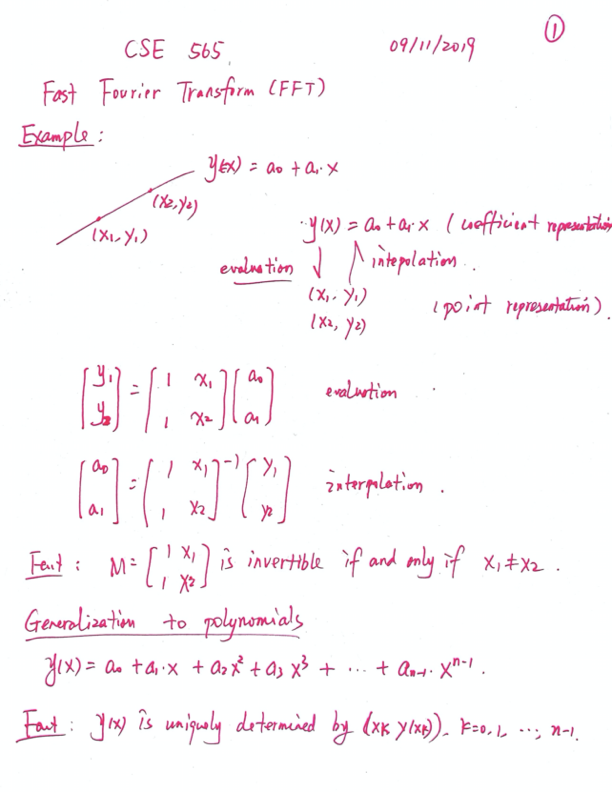 ①
CSE 565 09/11/2019
Fast Fourier Transform (FFT)
Example:
y(x) = a0 + a1·x
(x2, y2)
(x1, y1)
y(x) = a0 + a1·x (coefficient representation
evaluation ↓ ↑ intepolation.
(x1, y1)
(x2, y2) (point representation).
[y1; y2] = [1 x1; 1 x2] [a0; a1] evaluation
[a0; a1] = [1 x1; 1 x2]^-1 [y1; y2] interpolation.
Fact: M = [1 x1; 1 x2] is invertible if and only if x1 ≠ x2.
Generalization to polynomials
y(x) = a0 + a1·x + a2 x^2 + a3 x^3 + ··· + an-1· x^n-1.
Fact: y(x) is uniquely determined by (xk y(xk)). k=0,1, ···, n-1.